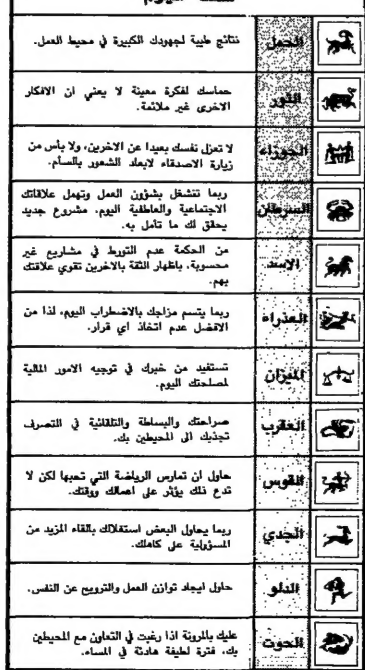 الحمل
نتائج طيبة لجهودك الكبيرة في محيط العمل.
الثور
حماسك لفكرة معينة لا يعني ان الافكار
الاخرى غير ملائمة.
الجوزاء
لا تعزل نفسك بعيدا عن الاخرين، ولا بأس من
زيارة الاصدقاء لابعاد الشعور بالسأم.
السرطان
ربما تنشغل بشؤون العمل وتهمل علاقاتك
الاجتماعية والعاطفية اليوم، مشروع جديد
يحقق لك ما تأمل به.
الاسد
من الحكمة عدم التورط في مشاريع غير
محسوبة، باظهار الثقة بالاخرين تقوي علاقتك
بهم.
العذراء
ربما يتسم مزاجك بالاضطراب اليوم، لذا من
الافضل عدم اتخاذ اي قرار.
الميزان
تستفيد من خبرك في توجيه الامور المالية
لمصلحتك اليوم.
العقرب
صراحتك والبساطة والتلقائية في التصرف
تجذبك الى المحيطين بك.
القوس
حاول ان تمارس الرياضة التي تحبها لكن لا
تدع ذلك يؤثر على اعمالك ووقتك.
الجدي
ربما يحاول البعض استغلالك بالقاء المزيد من
المسؤولية على كاهلك.
الدلو
حاول ايجاد توازن العمل والترويح عن النفس.
الحوت
عليك بالمرونة اذا رغبت في التعاون مع المحيطين
بك، فترة لطيفة هادئة في المساء.